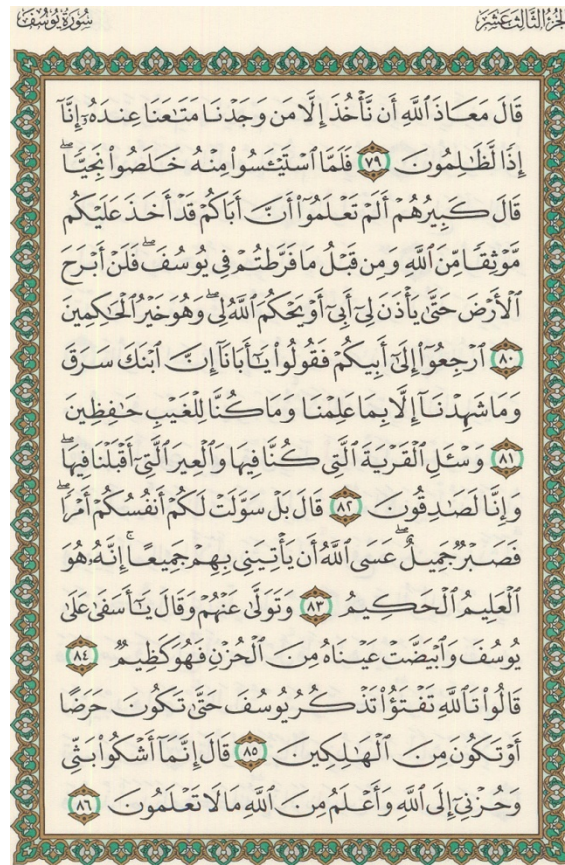 سُورَةُ يُوسُفَ
الجُزْءُ الثَّالِثَ عَشَرَ
قَالَ مَعَاذَ ٱللَّهِ أَن نَّأْخُذَ إِلَّا مَن وَجَدْنَا مَتَٰعَنَا عِندَهُۥٓ إِنَّآ
إِذًا لَّظَٰلِمُونَ ٧٩ فَلَمَّا ٱسْتَيْـَٔسُوا۟ مِنْهُ خَلَصُوا۟ نَجِيًّا ۖ
قَالَ كَبِيرُهُمْ أَلَمْ تَعْلَمُوٓا۟ أَنَّ أَبَاكُمْ قَدْ أَخَذَ عَلَيْكُم
مَّوْثِقًا مِّنَ ٱللَّهِ وَمِن قَبْلُ مَا فَرَّطتُمْ فِى يُوسُفَ ۖ فَلَنْ أَبْرَحَ
ٱلْأَرْضَ حَتَّىٰ يَأْذَنَ لِىٓ أَبِىٓ أَوْ يَحْكُمَ ٱللَّهُ لِى ۖ وَهُوَ خَيْرُ ٱلْحَٰكِمِينَ
٨٠ ٱرْجِعُوٓا۟ إِلَىٰٓ أَبِيكُمْ فَقُولُوا۟ يَٰٓأَبَانَآ إِنَّ ٱبْنَكَ سَرَقَ
وَمَا شَهِدْنَآ إِلَّا بِمَا عَلِمْنَا وَمَا كُنَّا لِلْغَيْبِ حَٰفِظِينَ
٨١ وَسْـَٔلِ ٱلْقَرْيَةَ ٱلَّتِى كُنَّا فِيهَا وَٱلْعِيرَ ٱلَّتِىٓ أَقْبَلْنَا فِيهَا ۖ
وَإِنَّا لَصَٰدِقُونَ ٨٢ قَالَ بَلْ سَوَّلَتْ لَكُمْ أَنفُسُكُمْ أَمْرًا ۖ
فَصَبْرٌ جَمِيلٌ ۖ عَسَى ٱللَّهُ أَن يَأْتِيَنِى بِهِمْ جَمِيعًا ۚ إِنَّهُۥ هُوَ
ٱلْعَلِيمُ ٱلْحَكِيمُ ٨٣ وَتَوَلَّىٰ عَنْهُمْ وَقَالَ يَٰٓأَسَفَىٰ عَلَىٰ
يُوسُفَ وَٱبْيَضَّتْ عَيْنَاهُ مِنَ ٱلْحُزْنِ فَهُوَ كَظِيمٌ ٨٤
قَالُوا۟ تَٱللَّهِ تَفْتَؤُا۟ تَذْكُرُ يُوسُفَ حَتَّىٰ تَكُونَ حَرَضًا
أَوْ تَكُونَ مِنَ ٱلْهَٰلِكِينَ ٨٥ قَالَ إِنَّمَآ أَشْكُوا۟ بَثِّى
وَحُزْنِىٓ إِلَى ٱللَّهِ وَأَعْلَمُ مِنَ ٱللَّهِ مَا لَا تَعْلَمُونَ ٨٦